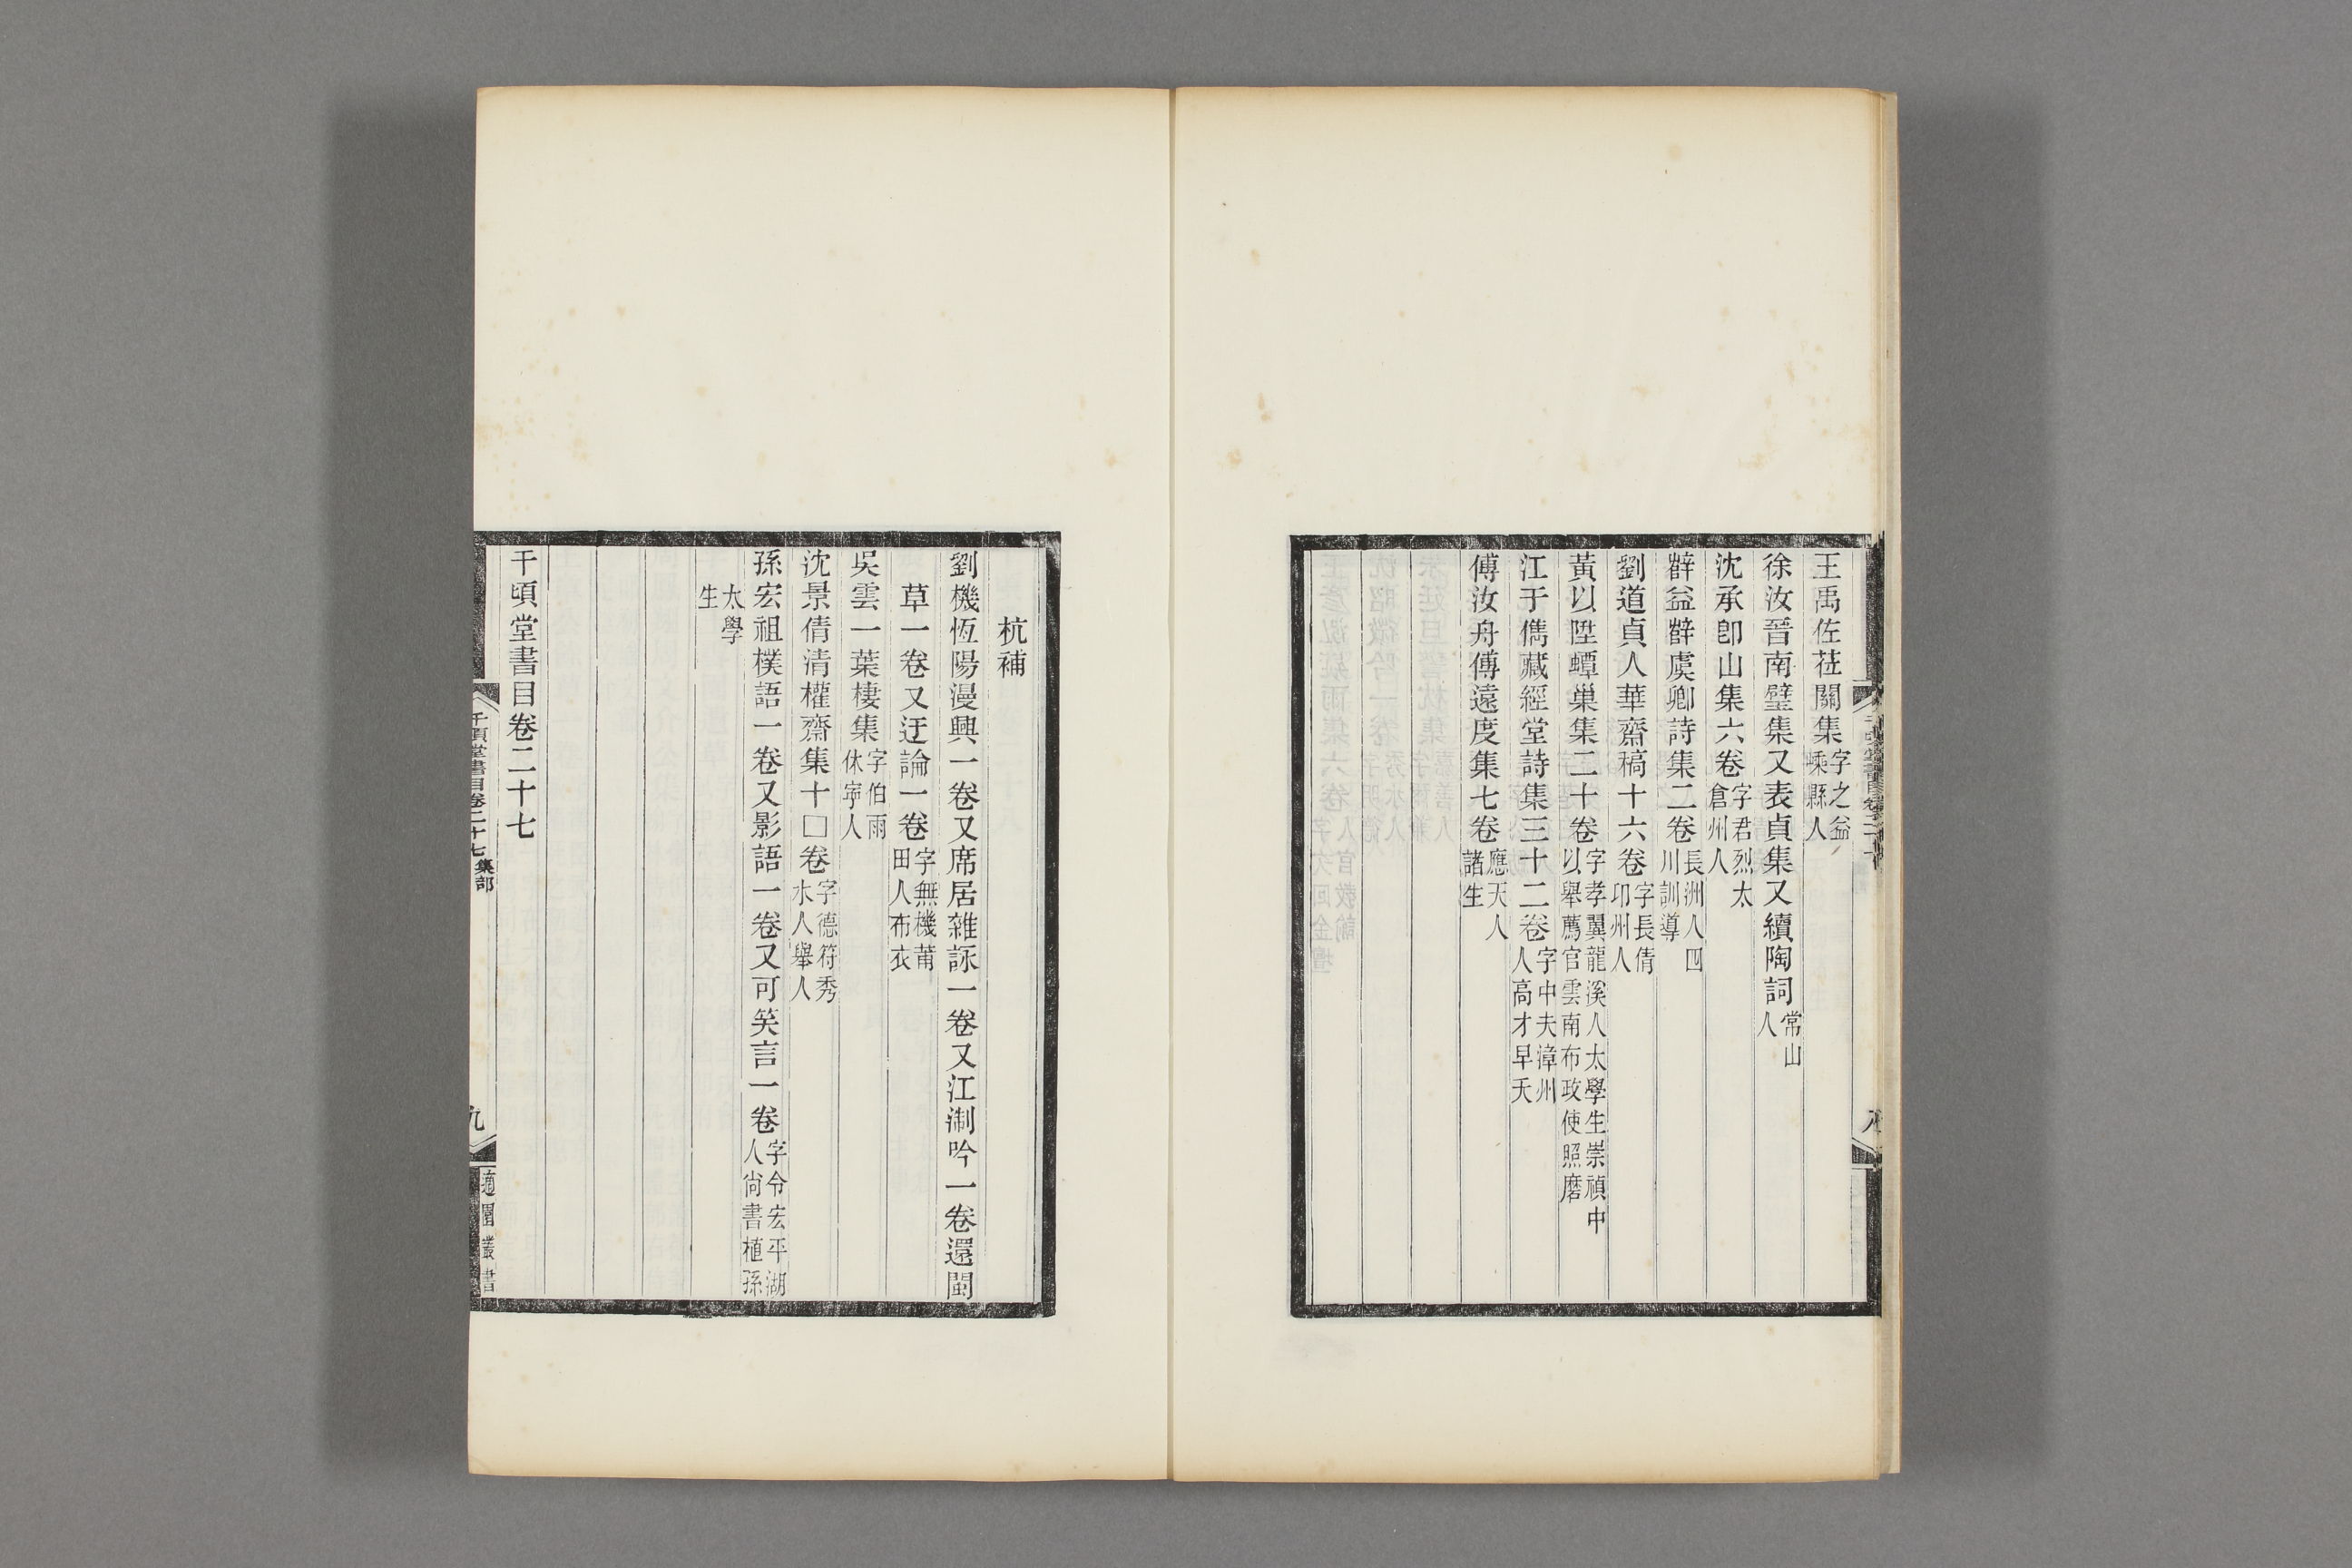 王禹佐莅關集字之益嵊縣人
徐汝晉南壁集又表貞集又續陶詞常山人
沈承卽山集六卷字君烈太倉州人
辥益辥虞卿詩集二卷長洲人四川訓導
劉道貞人華齋稿十六卷字長倩邛州人
黃以陞蟫巢集二十卷字孝翼龍溪人太學生崇禎中以舉薦官雲南布政使照磨
江于儁藏經堂詩集三十二卷字中夫漳州人高才早夭
傅汝舟傅遠度集七卷應天人諸生
杭補
劉機恆陽漫興一卷又席居雜詠一卷又江淛吟一卷還閩
草一卷又迂論一卷字無機莆田人布衣
吳雲一葉棲集字伯雨休寧人
沈景倩清權齋集十□卷字德符秀水人舉人
孫宏祖樸語一卷又影語一卷又可笑言一卷字令宏平湖人尙書植孫
太學生
千頃堂書目卷二十七
千頃堂書目卷二十七 集部
九
適園叢書